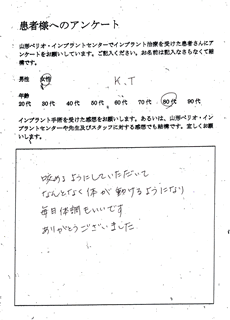 患者様へのアンケート
山形ペリオ・インプラントセンターでインプラント治療を受けた患者さんにア
ンケートをお願いしています。ご記入ください。お名前は記入なさらなくて結
構です。
男性 女性 K.T
年齢
20代 30代 40代 50代 60代 70代 80代 90代
インプラント手術を受けた感想をお願いします。あるいは、山形ペリオ・イン
プラントセンターや先生及びスタッフに対する感想でも結構です。宜しくお願
います。
咬めるようにしていただいて
なんとなく体が動けるようになり
毎日体調もいいです
ありがとうございました